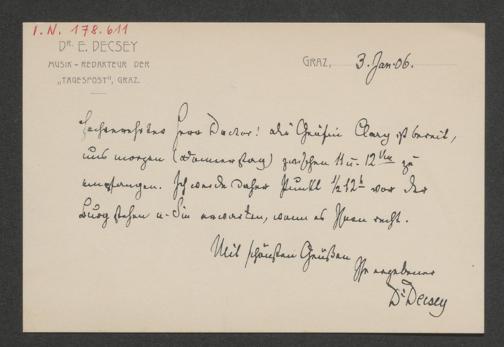 I.N. 178.611
DR. E. DECSEY
MUSIK-REDAKTEUR DER
„TAGESPOST", GRAZ.
GRAZ, 3. Jan. 06.
Hochverehrter Herr Doctor! die Gräfin Clary ist bereit,
uns morgen (Donnerstag) zwischen 11 u. 12 Uhr zu
empfangen. Ich werde daher Punkt ½12h vor der
Burg stehen u. Sie erwarten, wenn es Ihnen recht.
Mit schönsten Grüßen
Ihr ergebener
Dr Decsey